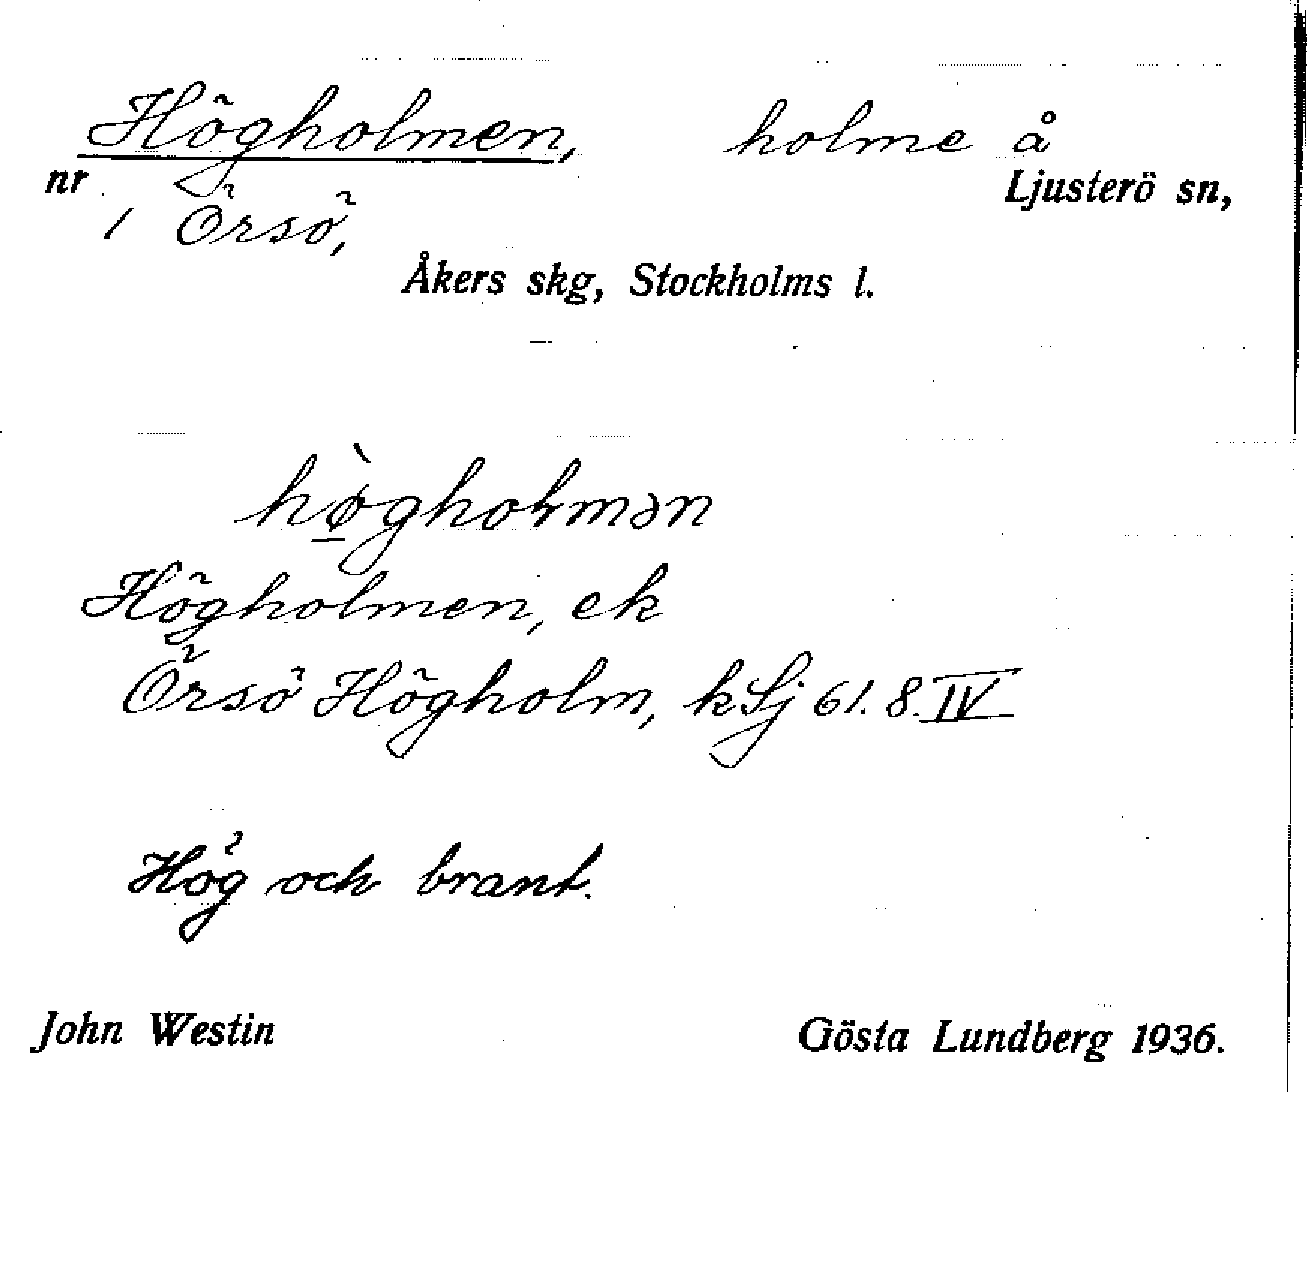 Högholmen, holme å
nr Ljusterö sn,
1 Örsö,
Åkers skg, Stockholms l.
hø̠̀gholmən
Högholmen, ek
Örsö Högholm, kLj 61. 8. IV
Hög och brant.
John Westin Gösta Lundberg 1936.